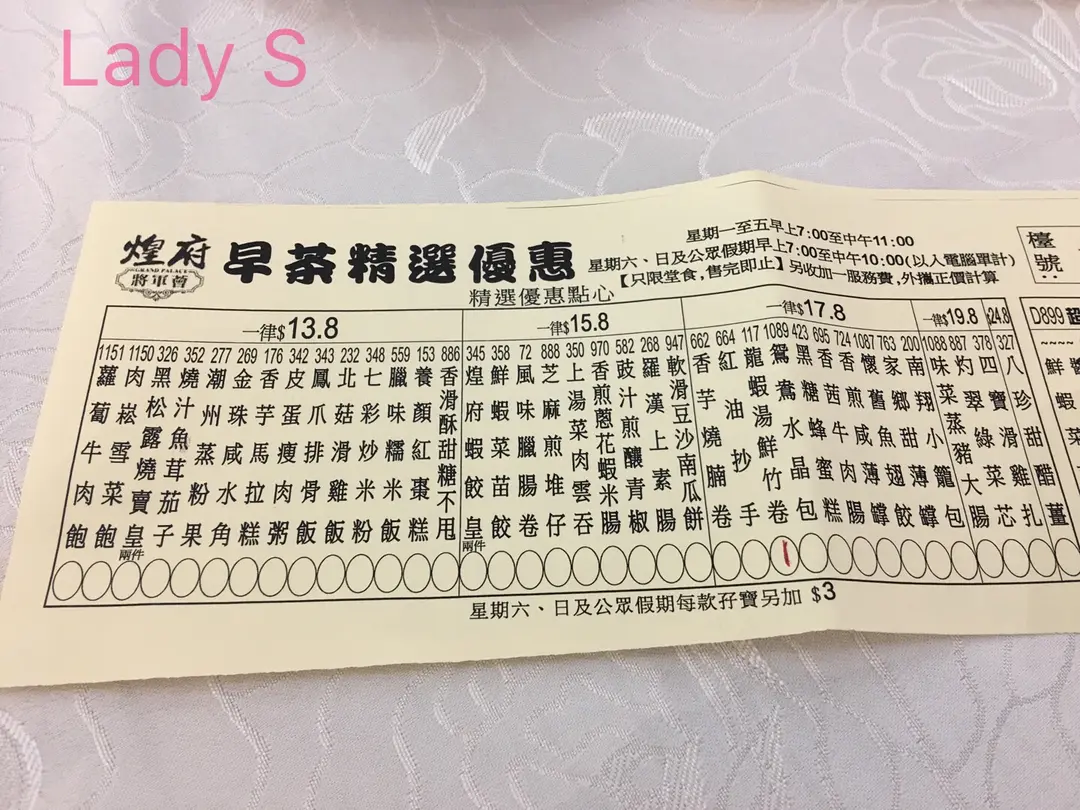 Lady S
煌府
GRAND PALACE
將軍薈
早茶精選優惠
星期一至五早上7:00至中午11:00
星期六、日及公眾假期早上7:00至中午10:00(以人電腦單計)
【只限堂食,售完即止】另收加一服務費,外攜正價計算
精選優惠點心
檯
號
:
一律$13.8
1151 蘿蔔牛肉飽
1150 肉崧雪菜飽
326 黑松露燒賣皇 兩件
352 燒汁魚茸茄子
277 潮州蒸粉果
269 金珠咸水角
176 香芋馬拉糕
342 皮蛋瘦肉粥
343 鳳爪排骨飯
232 北菇滑雞飯
348 七彩炒米粉
559 臘味糯米飯
153 養顏紅棗糕
886 香滑酥甜糖不甩
一律$15.8
345 煌府蝦餃皇 兩件
358 鮮蝦菜苗餃
72 風味臘腸卷
888 芝麻煎堆仔
350 上湯菜肉雲吞
970 香煎蔥花蝦米腸
582 豉汁煎釀青椒
268 羅漢上素腸
947 軟滑豆沙南瓜餅
一律$17.8
662 香芋燒腩卷
664 紅油抄手
117 龍蝦湯鮮竹卷
1089 鴛鴦水晶包
423 黑糖蜂蜜糕
695 香茜牛肉腸
724 香煎咸薄罉
1087 懷舊魚翅餃
763 家鄉甜薄罉
200 南翔小籠包
一律$19.8
1088 味菜蒸豬大腸
887 灼翠綠菜芯
378 四寶滑雞扎
24.8
327 八珍甜醋薑
D899
鮮蝦菜
星期六、日及公眾假期每款孖寶另加 $3